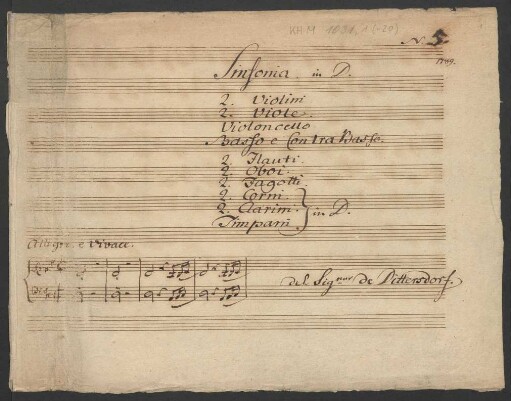 KHM 1631,1 (-20)
N. 5.
Sinfonia in D.
2. Violini
2. Viole.
Violoncello
Basso e Contra Basso.
2. Flauti
2. Oboi.
2. Fagotti.
2. Corni.
2. Clarini. in D.
Timpani
Allegro. e Vivace.
del Signor de Dittersdorf.